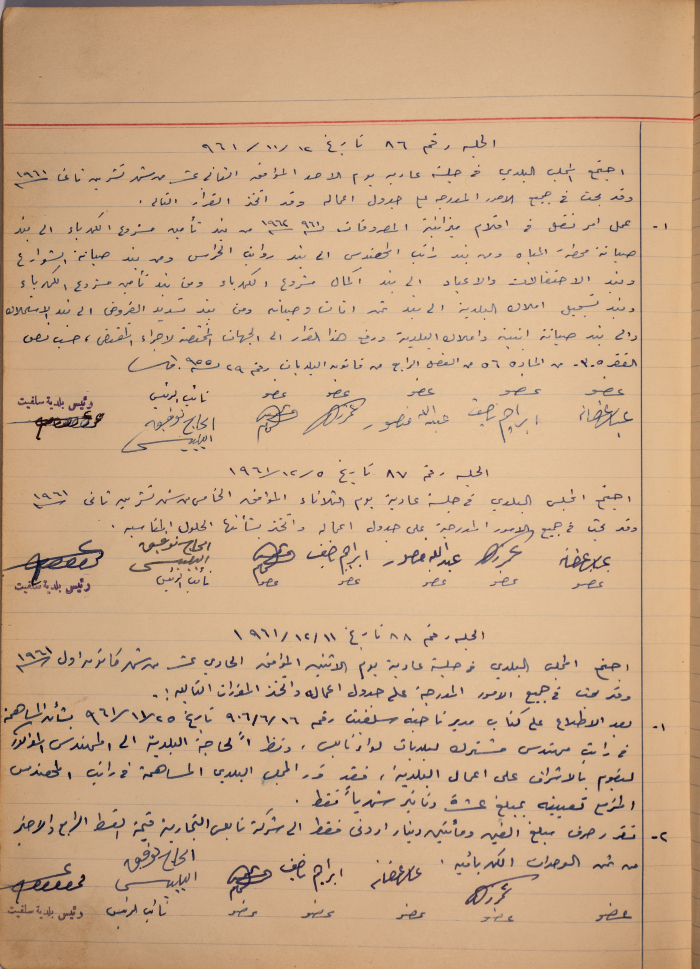 الجلسه رقم ٨٦ تاريخ ١٢/ ١١/ ٩٦١
اجتمع المجلس البلدي في جلسة عادية يوم الاحد الموافق الثاني عشر من شهر تشرين ثاني ١٩٦١
وقد بحث في جميع الامور المدرجه مع جدول اعماله وقد اتخذ القرار التالي .
١- عمل امر نقل في اقلام ميزانية المصروفات ٩٦١/ ١٩٦٢ من بند تأمين مشروع الكهرباء الى بند
صيانة محطة المياه ومن بند راتب المهندس الى بند رواتب الحراس ومن بند صيانة الشوارع
وبند الاحتفالات والاعياد الى بند اكمال مشروع الكهرباء ومن بند تأمين مشروع الكهرباء
وبند تسجيل املاك البلدية الى بند ثمن اثاث وصيانه ومن بند تسديد القروض الى بند الاستملاك
والى بند صيانة ابنية واملاك البلدية ورفع هذا القرار الى الجهات المختصة لاجراء المقتضى ، حسب نص
الفقره ٣ من الماده ٥٦ من الفصل الرابع من قانون البلديات رقم ٢٩ لسنة ٩٥٥
عضو عضو عضو عضو عضو نائب الرئيس رئيس بلدية سلفيت
ابراهيم عبدالله منصور الحاج توفيق
الجلسه رقم ٨٧ تاريخ ٥/ ١٢/ ١٩٦١
اجتمع المجلس البلدي في جلسة عادية يوم الثلاثاء الموافق الخامس من شهر تشرين ثاني ١٩٦١
وقد بحث في جميع الامور المدرجة على جدول اعماله واتخذ بشأنها الحلول المناسبه .
عبدالله منصور ابراهيم الحاج توفيق
عضو عضو عضو عضو عضو نائب الرئيس رئيس بلدية سلفيت
الجلسه رقم ٨٨ تاريخ ١١/ ١٢/ ١٩٦١
اجتمع المجلس البلدي في جلسة عادية يوم الاثنين الموافق الحادي عشر من شهر كانون اول ١٩٦١
وقد بحث في جميع الامور المدرجة على جدول اعماله واتخذ المقررات التاليه :.
١- بعد الاطلاع على كتاب مدير ناحية سلفيت رقم ١٦/ ٦/ ٩٠٦ تاريخ ٩٦١ بشأن المساهمة
في راتب مهندس مشترك لبلديات لواء نابلس ، ونظراً لحاجة البلدية الى المهندس المذكور
ليقوم بالاشراف على اعمال البلدية ، فقد قرر المجلس البلدي المساهمة في راتب المهندس
المزمع تعيينه بمبلغ عشرة دنانير شهرياً فقط .
٢- تقرر صرف مبلغ الفين ومائتين دينار اردني فقط الى شركة نابلس التجارية قيمة القسط الرابع والاخير
من ثمن الوحدات الكهربائيه .
ابراهيم الحاج توفيق
عضو عضو عضو عضو عضو نائب الرئيس رئيس بلدية سلفيت